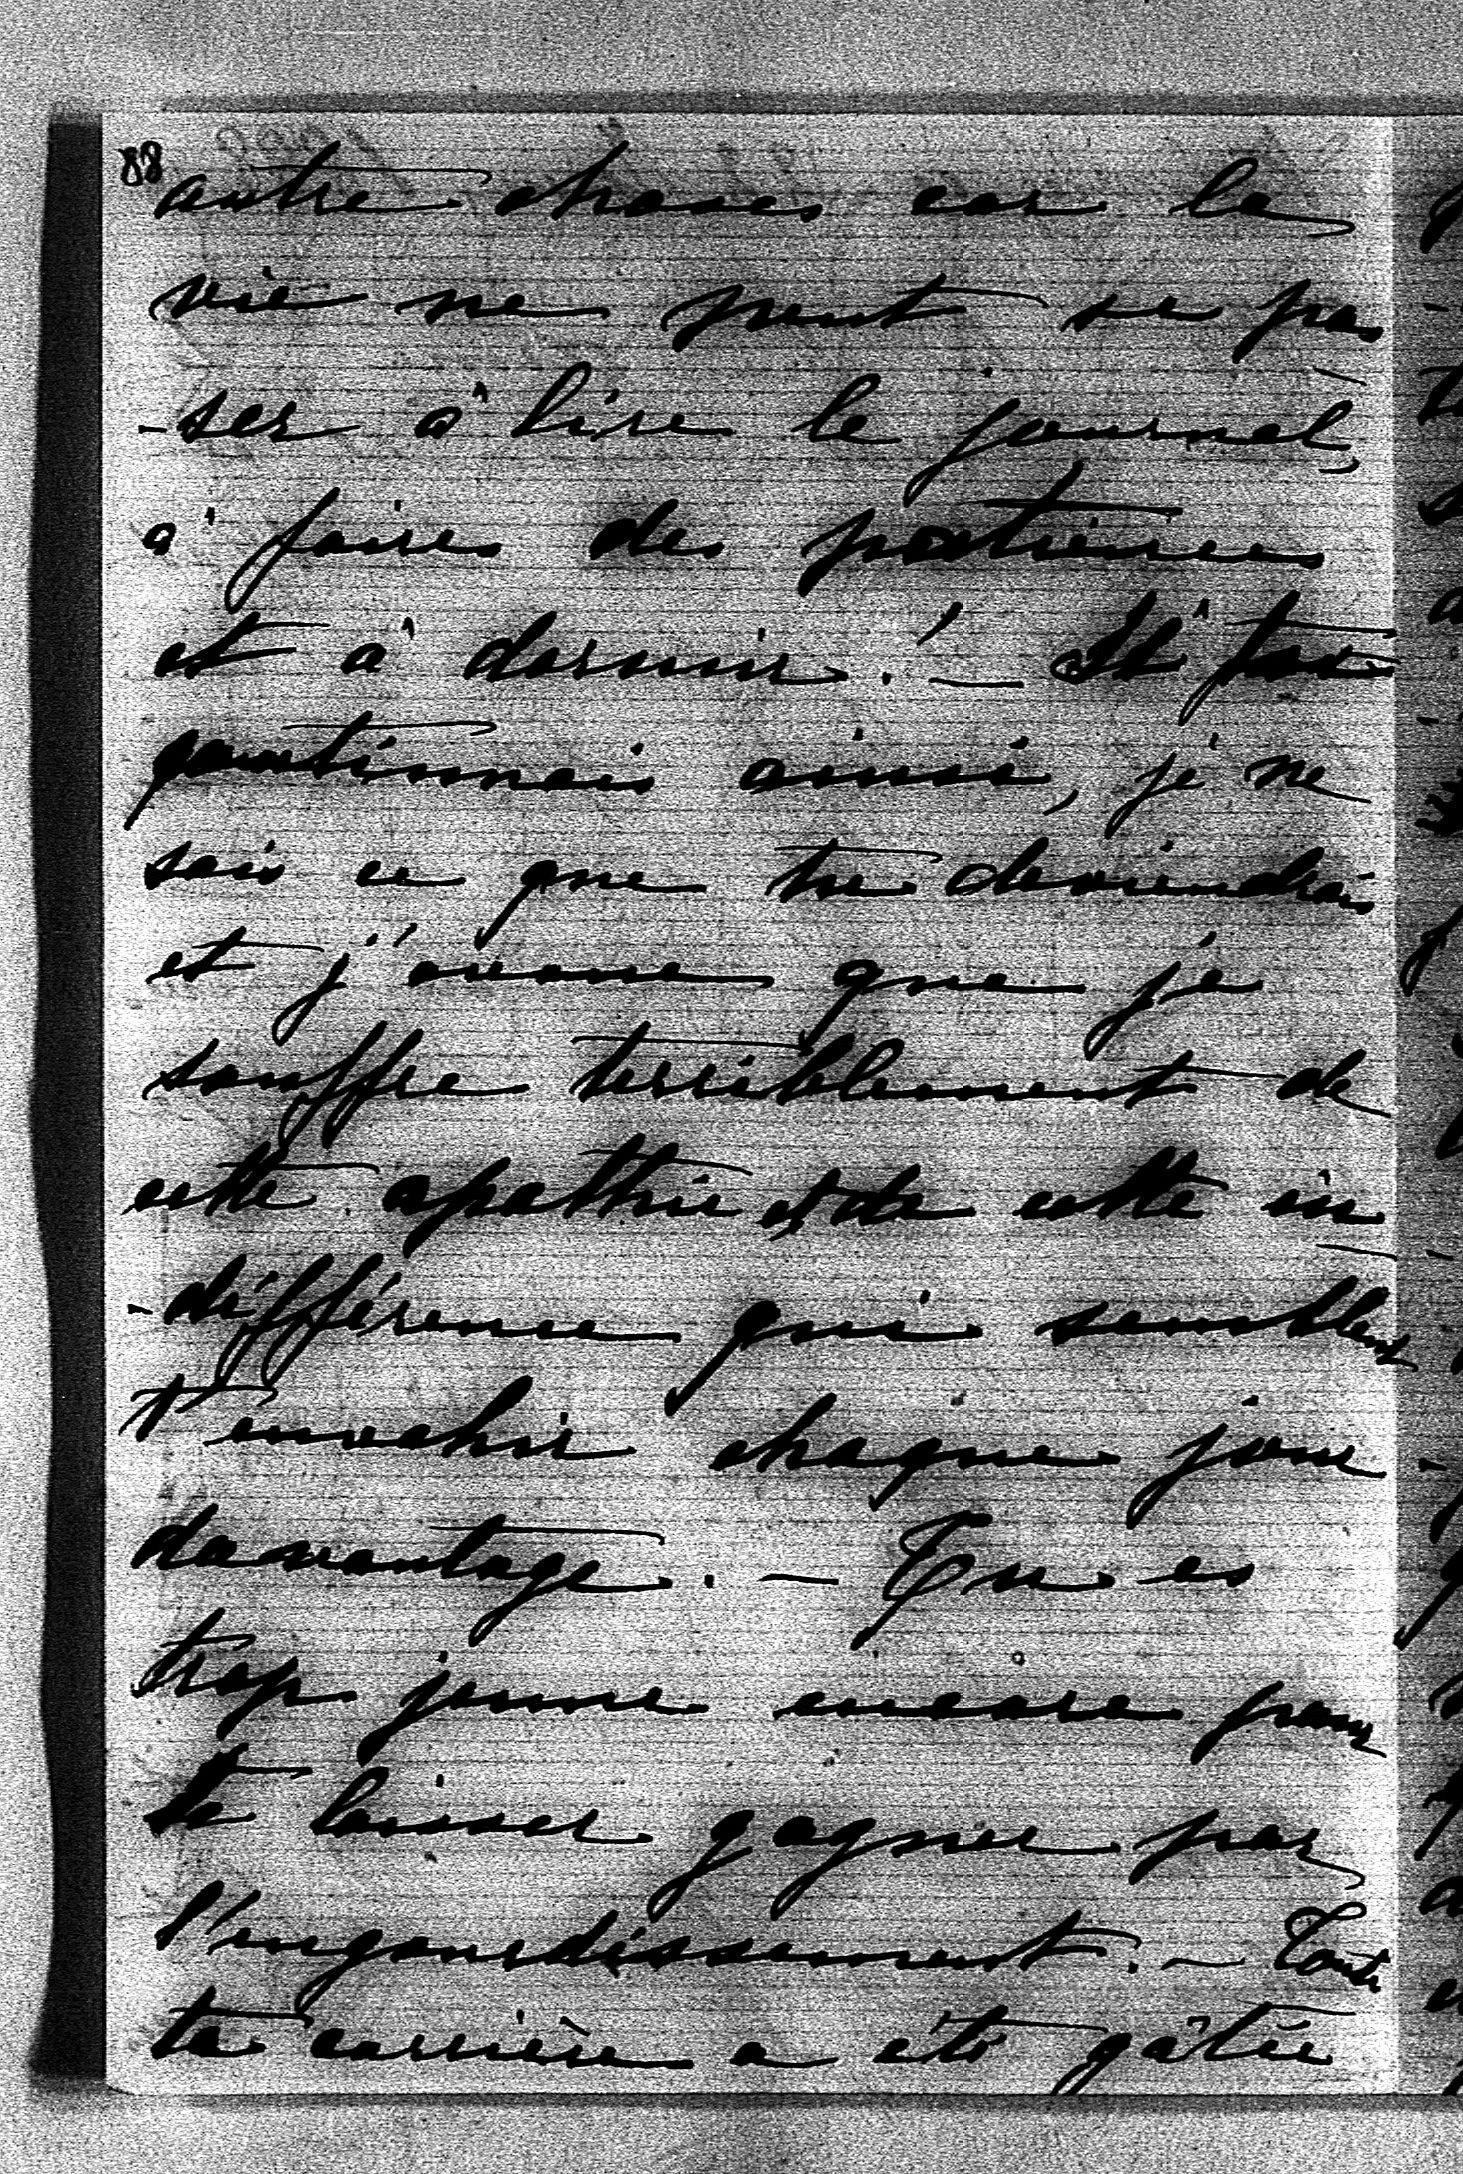 88
autre chose, car la
vie ne peut se pas
-ser à lire le journal,
à faire des patiences
et à dormir. — Si tu
continuais ainsi, je ne
sais ce que tu deviendrais
et j'avoue que je
souffre terriblement de
cette apathie et de cette in
-différence qui semblent
t'envahir chaque jour
davantage. — Tu es
trop jeune encore pour
te laisser gagner par
l'engourdissement. — Toute
ta carrière a été gâtée